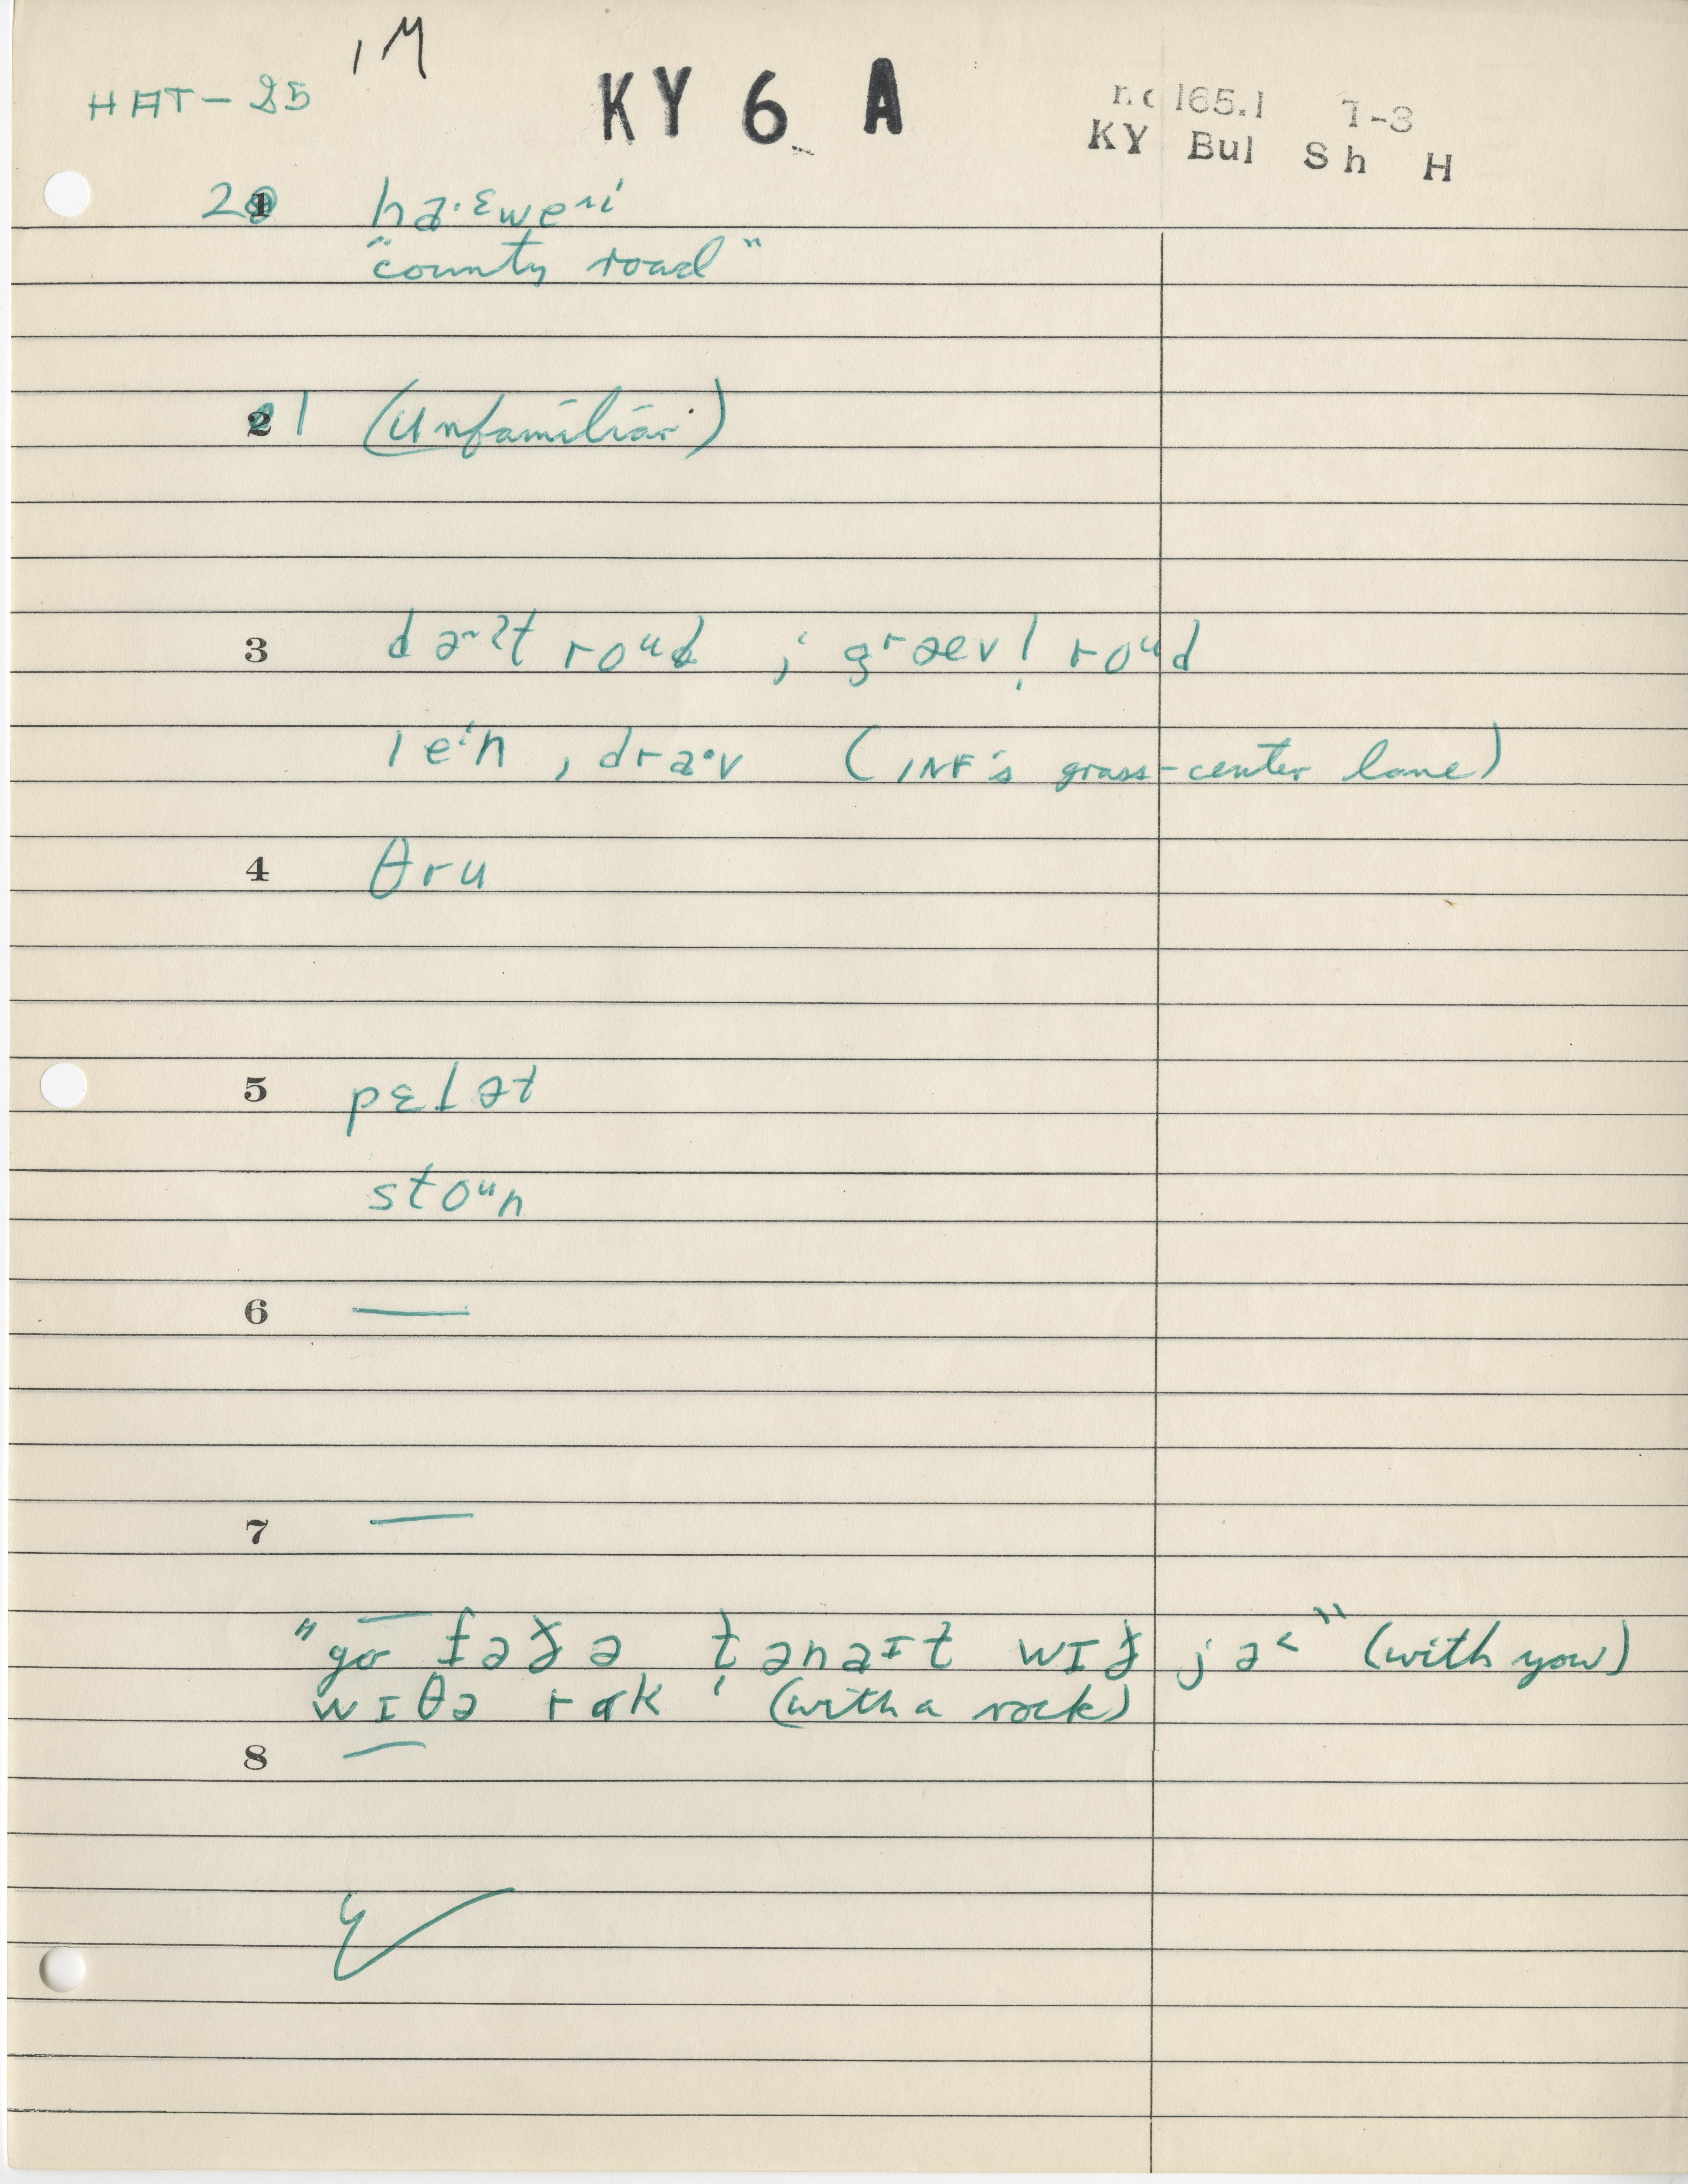 1M
HAT-25 KY 6 A no 165.1 T-3
KY Bul Sh H
20 ha·ᵋweⁿⁱ
"county road"
21 (Unfamiliar)
3 roᵘd ; græv̩l roᵘd
leⁱn , dra·v (INF's grass-center lane)
4 θru
5 pɛɫət
stoᵘn
6 —
7 —
"go fəðə tənaɪt wɪð jə<" (with you)
wɪθə rɑk ' (with a rock)
8 —